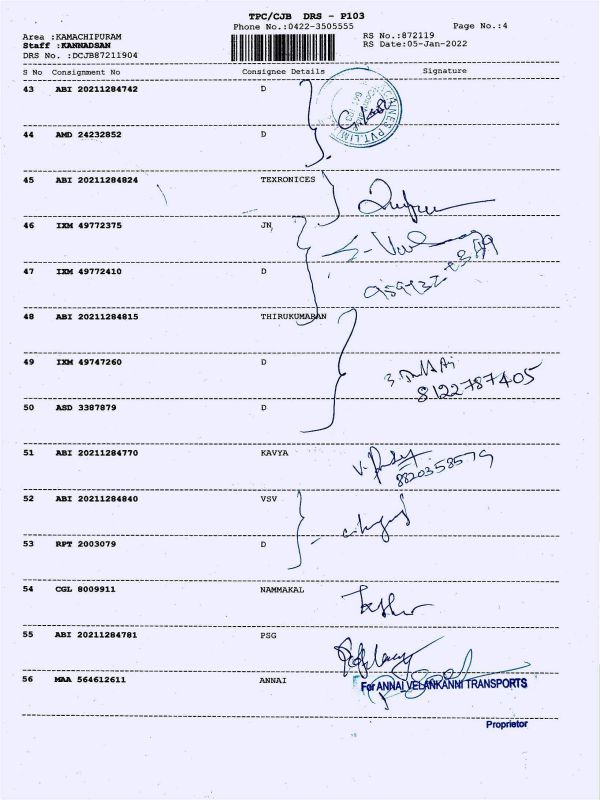 TPC/CJB DRS - P103
Phone No.:0422-3505555 Page No.:4
Area :KAMACHIPURAM RS No.:872119
Staff :KANNADSAN RS Date:05-Jan-2022
DRS No. :DCJB87211904
S No Consignment No Consignee Details Signature
43 ABI 20211284742 D
44 AMD 24232852 D
45 ABI 20211284824 TEXRONICES
46 IXM 49772375 JN
47 IXM 49772410 D
48 ABI 20211284815 THIRUKUMARAN
49 IXM 49747260 D
8122787405
50 ASD 3387879 D
51 ABI 20211284770 KAVYA
8820358579
52 ABI 20211284840 VSV
53 RPT 2003079 D
54 CGL 8009911 NAMMAKAL
55 ABI 20211284781 PSG
56 MAA 564612611 ANNAI
For ANNAI VELANKANNI TRANSPORTS
Proprietor